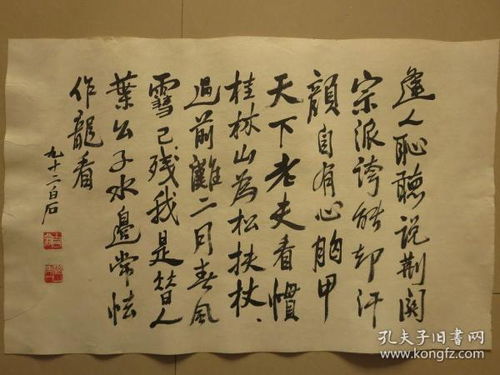 逢人恥聽說荊關
宗派誇能却汗
顏自有心胸甲
天下老夫看慣
桂林山為松扶杖、
過前灘二月春風
雪已残我是昔人
葉公子水邊常怯
作龍看
九十二白石
孔夫子旧书网
www.kongfz.com